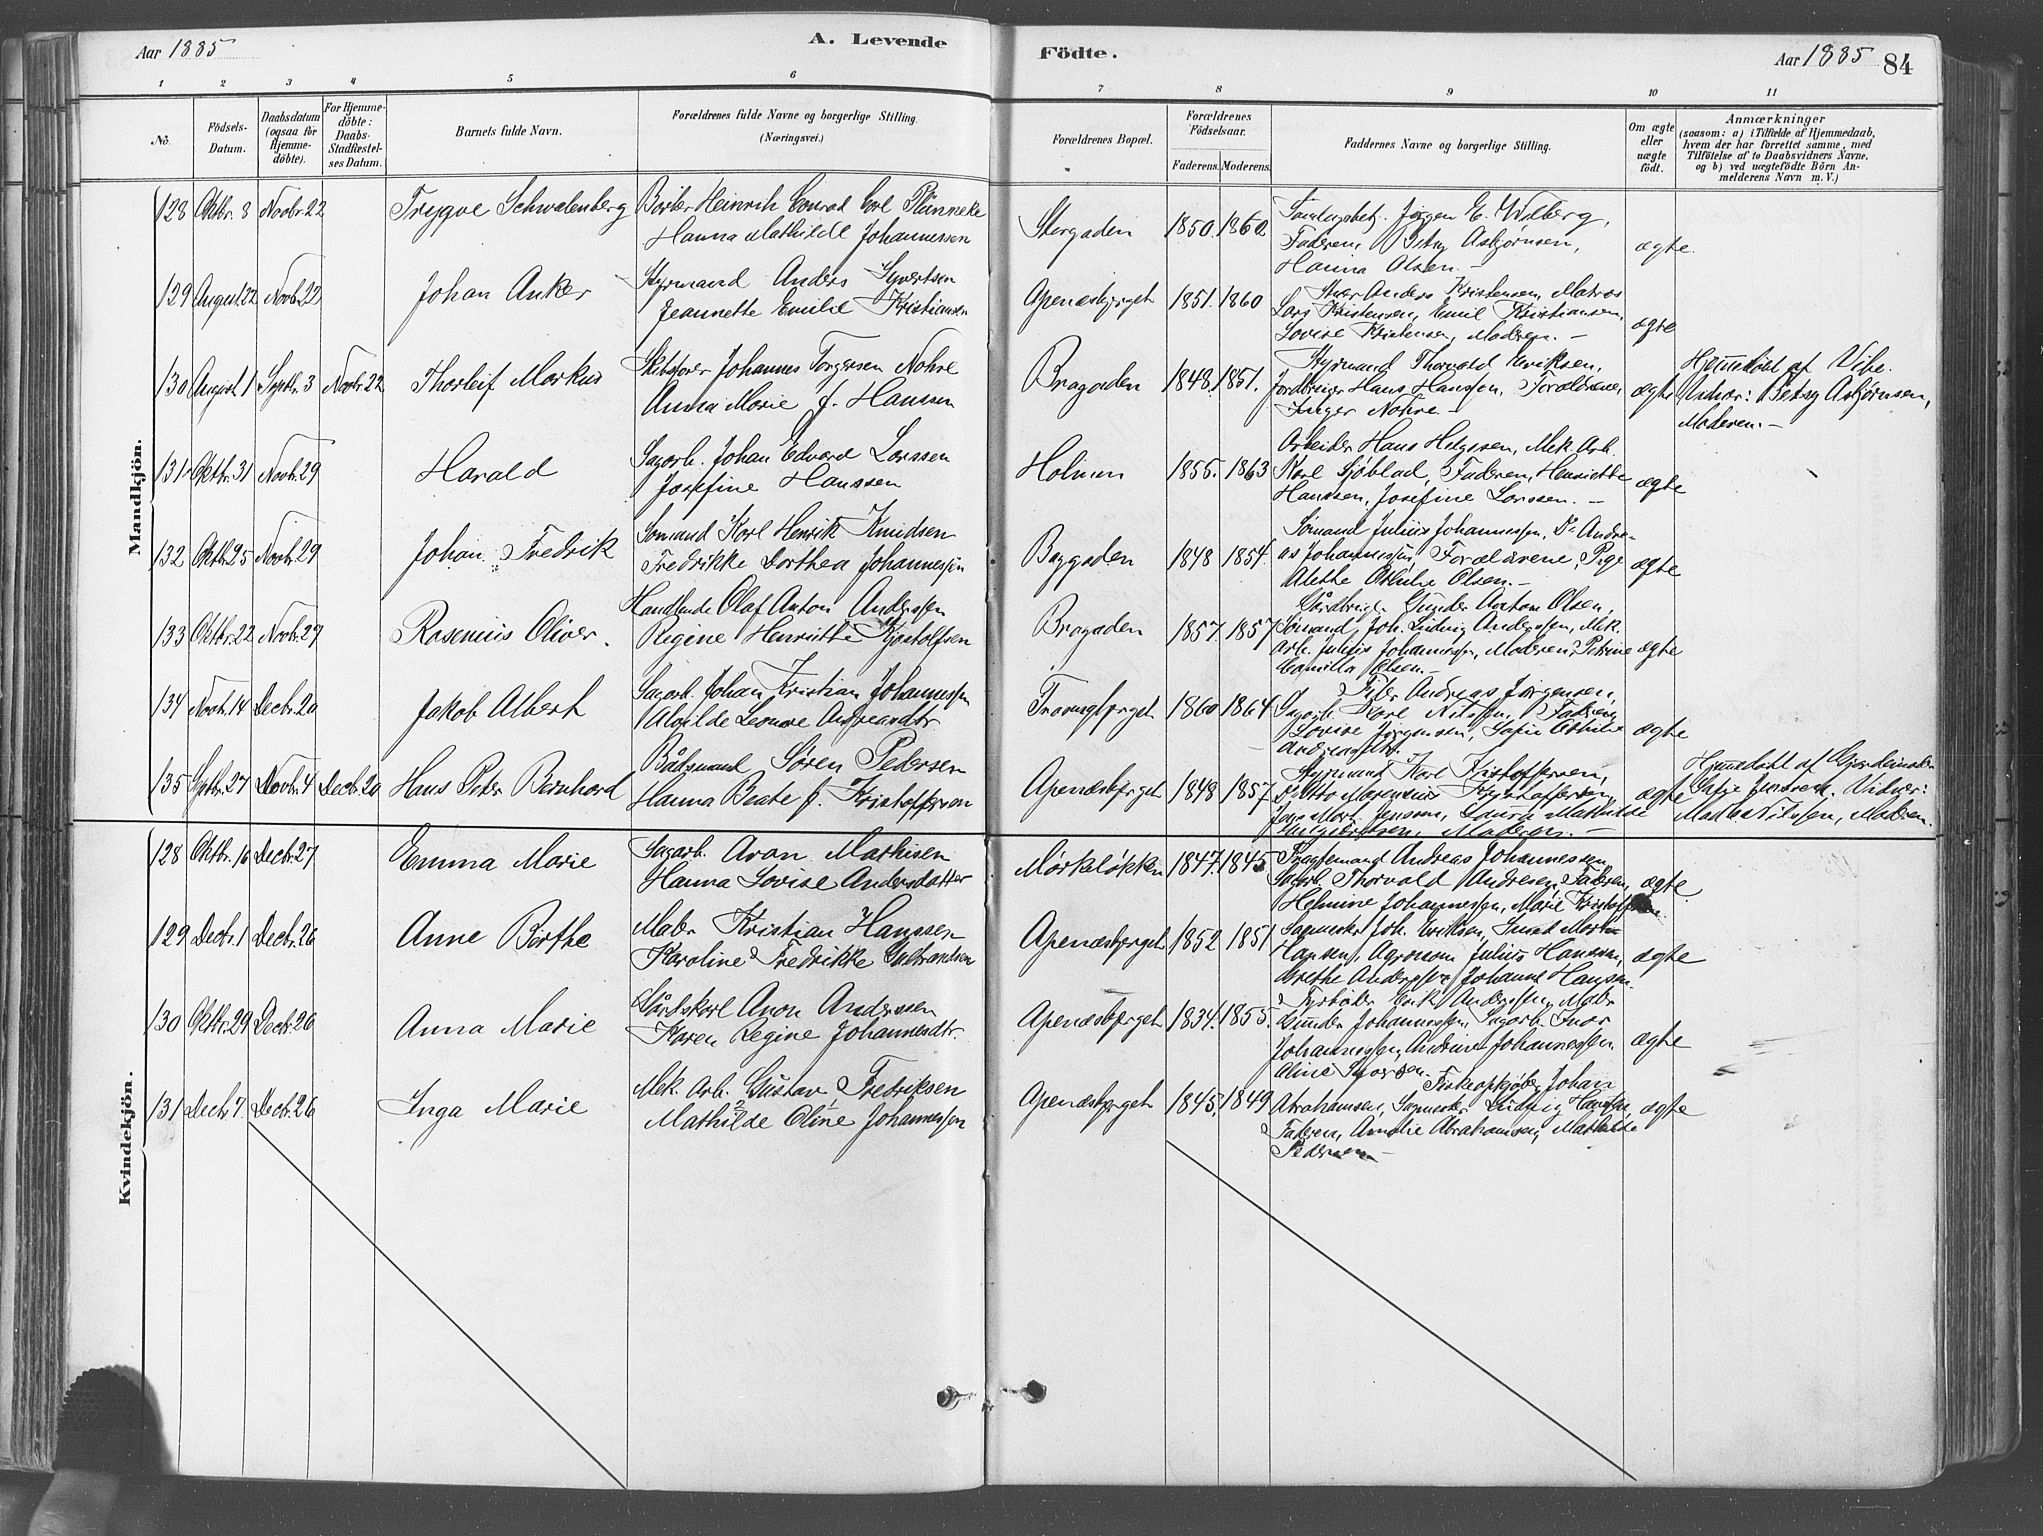 Aar 1885
A. Levende
Födte.
Aar 1885 84
1 2 3 4 5 6 7 8 9 10 11
No.
Födsels-
Datum.
Daabsdatum
(ogsaa för
Hjemme-
döbte).
For Hjemme-
döbte:
Daabs-
Stadfæstel-
ses Datum.
Barnets fulde Navn.
Forældrenes fulde Navne og borgerlige Stilling.
(Næringsvei.)
Forældrenes Bopæl.
Forældrenes
Födselsaar.
Faderens. Moderens.
Faddernes Navne og borgerlige Stilling.
Om ægte
eller
uægte
födt.
Anmærkninger
(saasom: a) i Tilfælde af Hjemmedaab,
hvem der har forrettet samme, med
Tilföielse af to Daabsvidners Navne.
og b) ved uægtefödte Börn An-
melderens Navn m. V.)
Mandkjön.
128 Oktbr. 8 Novbr. 22 Trygve Schwalenberg Heinrich Conrad Carl Plünneke
Hanna Mathilde Johannessen
Storgaden 1850. 1860. Jørgen E. Wilberg,
Faderen, Betsy Asbjørnsen,
Hanna Olsen. –
ægte.
129 August 22 Novb. 22 Johan Anker Styrmand Anders Syvertsen
Jeannette Emilie Kristiansen
Apenæsbjerget 1851. 1860 Anders Kristensen, Matros
Lars Kristensen, Emil Kristiansen,
Lovise Kristensen, Moderen. –
ægte
130 August 1 Septbr. 3 Novbr. 22 Thorleif Markus Skibsfører Johannes Torgersen Nohre
Anna Marie f. Hanssen
Bragaden 1848. 1851. Styrmand Thorvald Eriksen,
Jordbruger Hans Hanssen, Forældrene,
Inger Nohre –
ægte Hjemmedøbt af Vibe.
Vidner: Betsy Asbjørnsen,
Moderen. –
131 Oktbr. 31 Novbr. 29 Harald Sagarb. Johan Edvard Larssen
Josefine Hanssen
Holmen 1855. 1863 Arbeider Hans Helgesen, Mek. Arb.
Karl Sjöblad, Faderen, Henriette
Hanssen, Josefine Larssen. –
ægte
132 Oktbr. 25 Novbr. 29 Johan Fredrik Sømand Karl Henrik Knudsen
Fredrikke Dorthea Johannessen
Baggaden 1848 1854. Sømand Julius Johannessen, Do Andre-
as Johannessen, Forældrene, Pige
Alette Othilie Olsen. –
ægte
133 Oktbr. 22 Novbr. 29 Rosenius Oliver. Handlende Olaf Anton Anderssen
Regine Henriette Kjostolfsen
Bragaden 1857. 1857 Gårdbruger Gunder Anton Olsen,
Sømand Joh. Ludvig Anderssen, Mek.
Arb. Julius Johannessen, Moderen, Petrine
Camilla Olsen. –
ægte
134 Novbr. 14 Decbr. 20 Jakob Albert Sagarb. Johan Kristian Johannessen
Alvilde Leonore Andreasdtr.
1860 1864 Andreas Jørgensen,
Sagarb. Karl Nilssen, Faderen,
Lovise Jørgensen, Sofie Othilie
Andreasdtr.
ægte
135 Septbr. 27 Novbr. 4 Decbr. 20 Hans Peter Bernhard Bådsmand Søren Pedersen
Hanna Beate f. Kristoffersen
Apenæsbjerget 1848 1857 Styrmand Karl Kristoffersen,
Otto Marensius Kristoffersen,
Jens Mart. Jenssen, Laura Mathilde
Moderen. –
ægte Hjemmedøbt af Gjordemoder
Vidner:
Nilssen, Moderen.
Kvindekjön.
128 Oktbr. 16 Decbr. 27 Emma Marie Sagarb. Aron Mathisen
Hanna Lovise Andersdatter
Mørkeløkken 1847. 1845 Andreas Johannessen,
Sagarb. Thorvald Andresen, Faderen,
Helmine Johannessen, Marie
ægte.
129 Decbr. 1 Decbr. 26 Anne Berthe Maler Kristian Hanssen
Karoline Fredrikke Gulbrandsen
Apenæsbjerget 1852 1851 Sagmester Joh. Eriksen, Smed Martin
Hansen, Agronom Julius Hansen,
Grethe Anderssen, Johanne Hanssen.
ægte
130 Oktbr. 29 Decbr. 26 Anna Marie Gårdskarl Aron Anderssen
Karen Regine Johannesdtr.
Apenæsbjerget 1834. 1855. Fyrbøder Erik Anderssen, Maler
Gunder Johannessen, Sagarb. Ivar
Johannessen, Andrine Johannessen,
Aline
ægte
131 Decbr. 7 Decbr. 26 Inga Marie Mek. Arb. Gustav Fredriksen
Mathilde Oline Johannessen
Apenæsbjerget 1845. 1849 Fiskeopkjøber Johan
Abrahamsen, Sagmester Ludvig Hanssen,
Faderen, Amalie Abrahamsen, Mathilde
Pedersen –
ægte